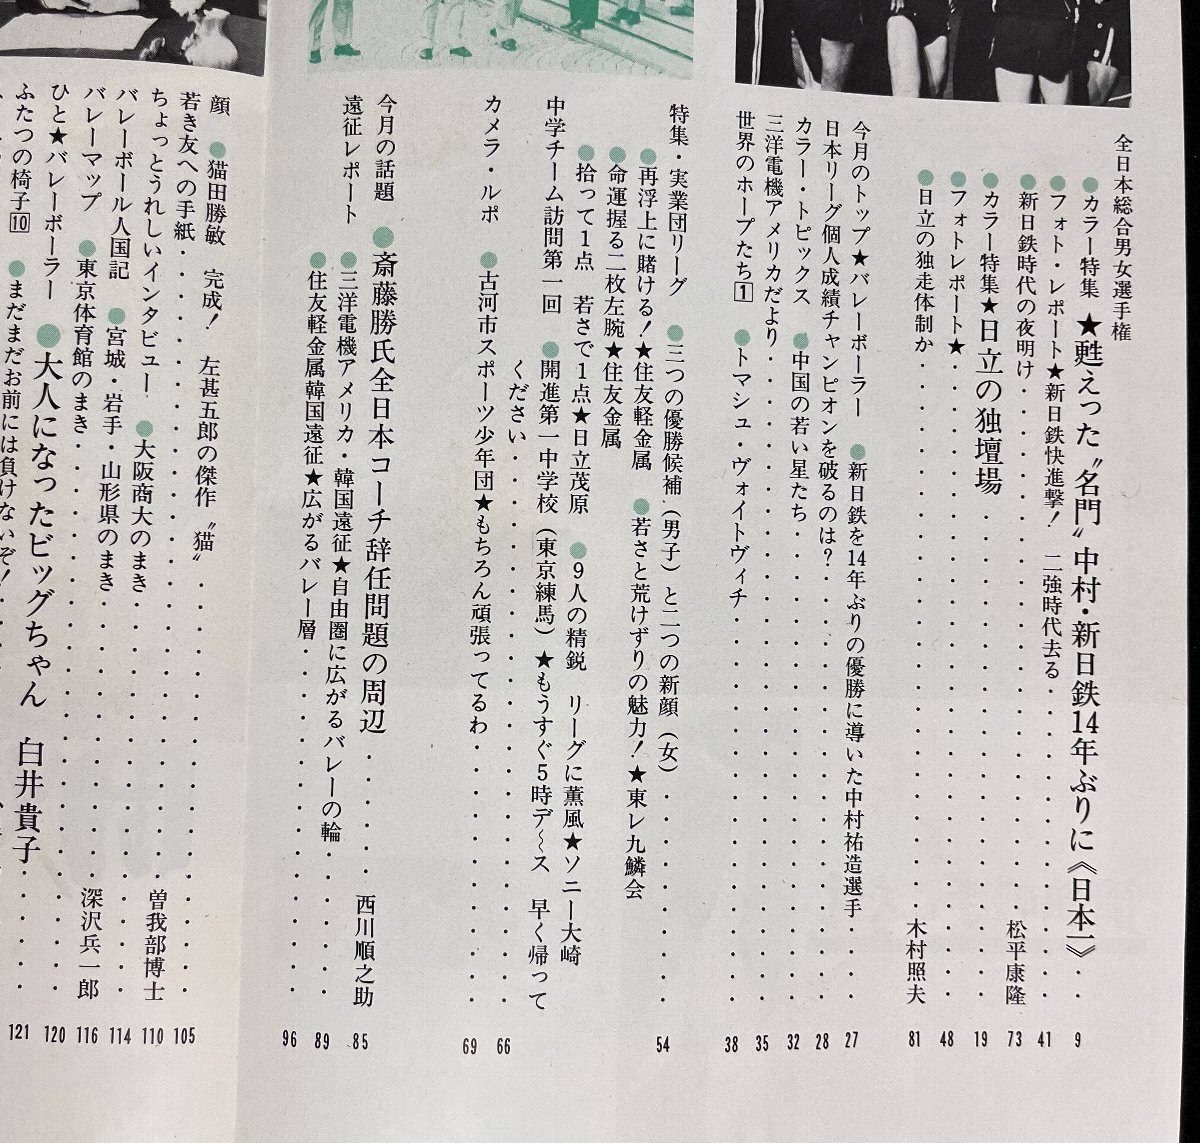 全日本総合男女選手権
●カラー特集 ★甦えった〝名門〟中村・新日鉄14年ぶりに《日本一》・・9
●フォト・レポート★新日鉄快進撃! 二強時代去る・・・・・・・・・・41
●新日鉄時代の夜明け・・・・・・・・・・松平康隆 73
●カラー特集★日立の独壇場・・・・・・・・・・19
●フォトレポート★・・・・・・・・・・48
●日立の独走体制か・・・・・・・・・・木村照夫 81
今月のトップ★バレーボーラー ●新日鉄を14年ぶりの優勝に導いた中村祐造選手・・・27
日本リーグ個人成績チャンピオンを破るのは?・・・・・・・・・・28
カラー・トピックス ●中国の若い星たち・・・・・・・・・・32
三洋電機アメリカだより・・・・・・・・・・35
世界のホープたち1 ●トマシュ・ヴォイトヴィチ・・・・・・・・・・38
特集・実業団リーグ ●三つの優勝候補(男子)と二つの新顔(女)・・・・・・54
●再浮上に賭ける!★住友軽金属 ●若さと荒けずりの魅力!★東レ九鱗会
●命運握る二枚左腕★住友金属
●拾って1点 若さで1点★日立茂原 ●9人の精鋭 リーグに薫風★ソニー大崎
中学チーム訪問第一回 ●開進第一中学校(東京練馬)★もうすぐ5時デ〜ス 早く帰って
ください・・・・・・・・・・66
カメラ・ルポ ●古河市スポーツ少年団★もちろん頑張ってるわ・・・・・・・69
今月の話題 ●斎藤勝氏全日本コーチ辞任問題の周辺・・・・・西川順之助 85
遠征レポート ●三洋電機アメリカ・韓国遠征★自由圏に広がるバレーの輪・・・・・89
●住友軽金属韓国遠征★広がるバレー層・・・・・・・・・・96
顔 ●猫田勝敏 完成! 左甚五郎の傑作〝猫〟・・・・・・・・・・
若き友への手紙・・・・・・・・・・105
ちょっとうれしいインタビュー ●大阪商大のまき・・・・・・・・・曽我部博士 110
バレーボール人国記 ●宮城・岩手・山形県のまき・・・・・・・・・・114
バレーマップ ●東京体育館のまき・・・・・・・・・・深沢兵一郎 116
ひと★バレーボーラー ●大人になったビッグちゃん 白井貴子・・・・120
ふたつの椅子10 ●まだまだお前には負けないぞ!・・・・121